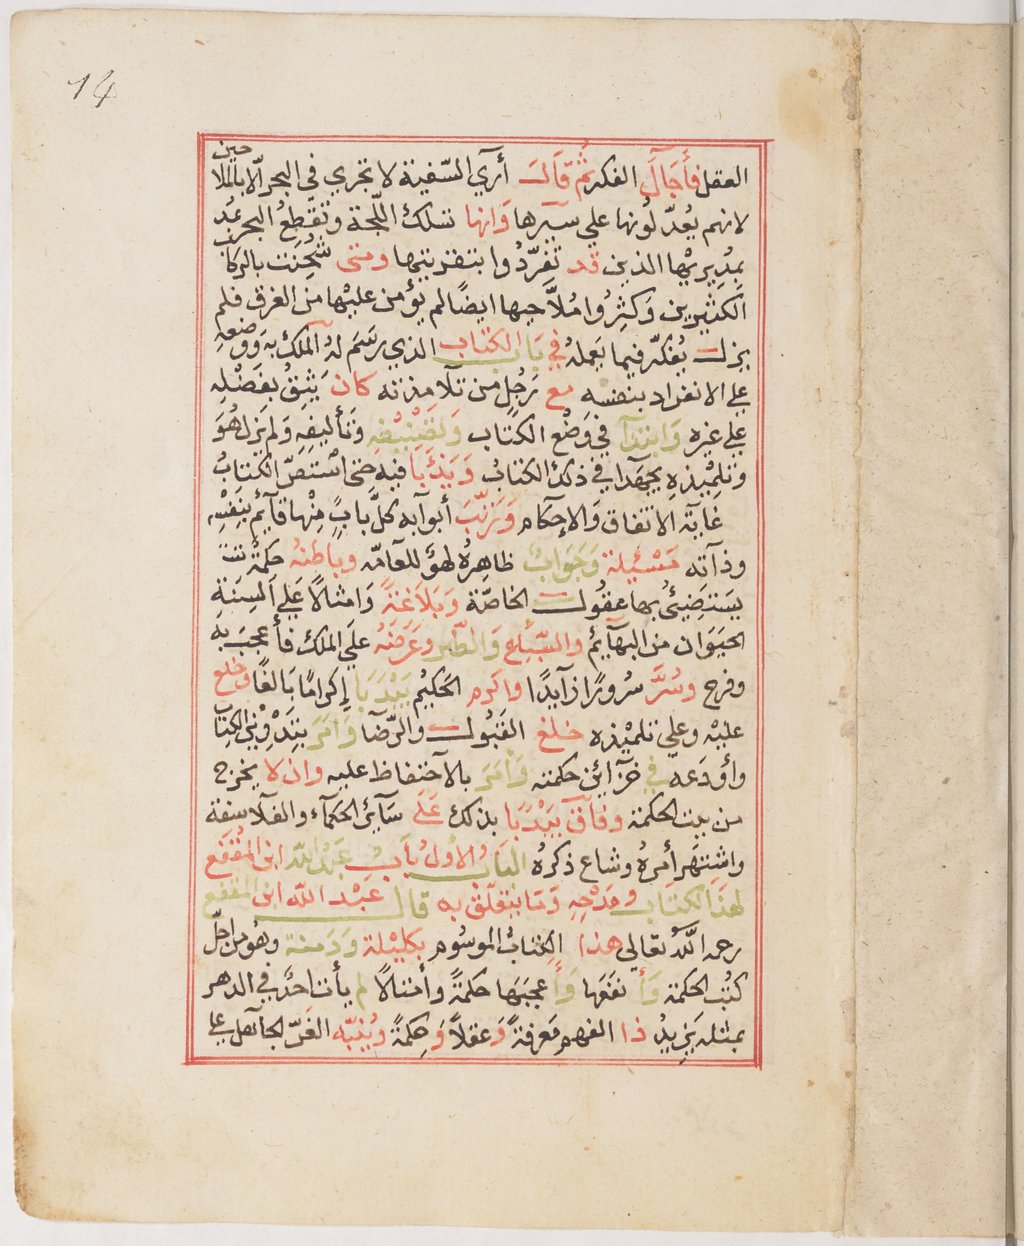 14
العقل فأَجَالَ الفكر ثُمّ قَالَ أرَي السّفينة لا تجري في البحر الّا بالملا
حين
لانهم يُعدّلُونها علي سيرها وَانها تسلك اللّجة وتقطعُ البحر عند
بمُديريْها الذين قد تَفرّدُوا بتقريتها ومتى شُحِنَت بالركاب
الكثيرين وَكثِرُوا مُلاَّحيها ايضًا لم يؤمن عليْها من الغرق فلم
يزل يُفكرّ فيما يَعملهُ في بَابِ الكتاب الذي رسَمَ لهُ الملك به وَوضعِهِ
علي الانفراد بنفسه مع رَجُلٍ من تلامذته كان يَثِقُ بفَضْلِه
علي غيره وَابتدآ في وَضْع الكتاب وَتَصْنيفِهِ وَتأليفِهِ ولم يَزل هُوَ
وتلِمْيذه يجهَدا في ذلك الكتابُ وَيَدْأبَا فيه حَتى اسْتقصّ الكتابُ
غايَة الاتفاق وَالإحكام وَرَتّبَ أبوابه كلَّ بابٍ مِنْها قآئم بنَفسِهِ
وذآته مَسْئيلة وَجَوَابٌ ظاهِرهُ لهوًَ للعآمّه وباطنهُ حكمةٌ
يسَتَضِئُ بها عقول الخاصّة وَبَلاَغةً وَامثالاً عَلي اَلسِنَةِ
الحيَوان من البهآئم والسّبُع وَالطّير وعَرضَهُ علَي الملك فأعجبَ بهِ
وفرح وسُرَّ سرُورًا زآيدًا واكرم الحكيُم بَيْدَبَا إكرامًا بَالغًا وخلع
عليْه وعلي تلمْيذه خلع القبُول والرّضَآ وَامَرَ بتَدْوِيْن الكِتاب
وأودَعه في خزآئن حكمته وَأمَرَ بالآحتفاظ عليه وان لا يخرج
من بيت الحكمة وفآق بَيْدَبَا بذلك عَلَى سَآئِر الحكمآء والفلاسفة
واشتهرَ أمرهُ وشاع ذكرهُ البَابُ الأولُ بَابُ عَبْدُ اللّه ابن المقَفع
لهذَا الكتَاب ومَدْحِهِ وَمَا يتعَلّق به قال عَبْد اللّه ابن المقفع
رحمه اللّه تعَالى هذا الكِتابُ الموسُوم بكليْلة وَدَمنة وهُو من اجلّ
كتُب الحكمة وَأنفَعَها وَأعجبَهَا حكمةً وأمثالاً لم يأت احدٌ في الدهر
بمثله يَزيدُ ذا الفهم مَعرفةً وَعقلاً وَحِكمةً ويُنبّه الغَرّ الجآهل علي